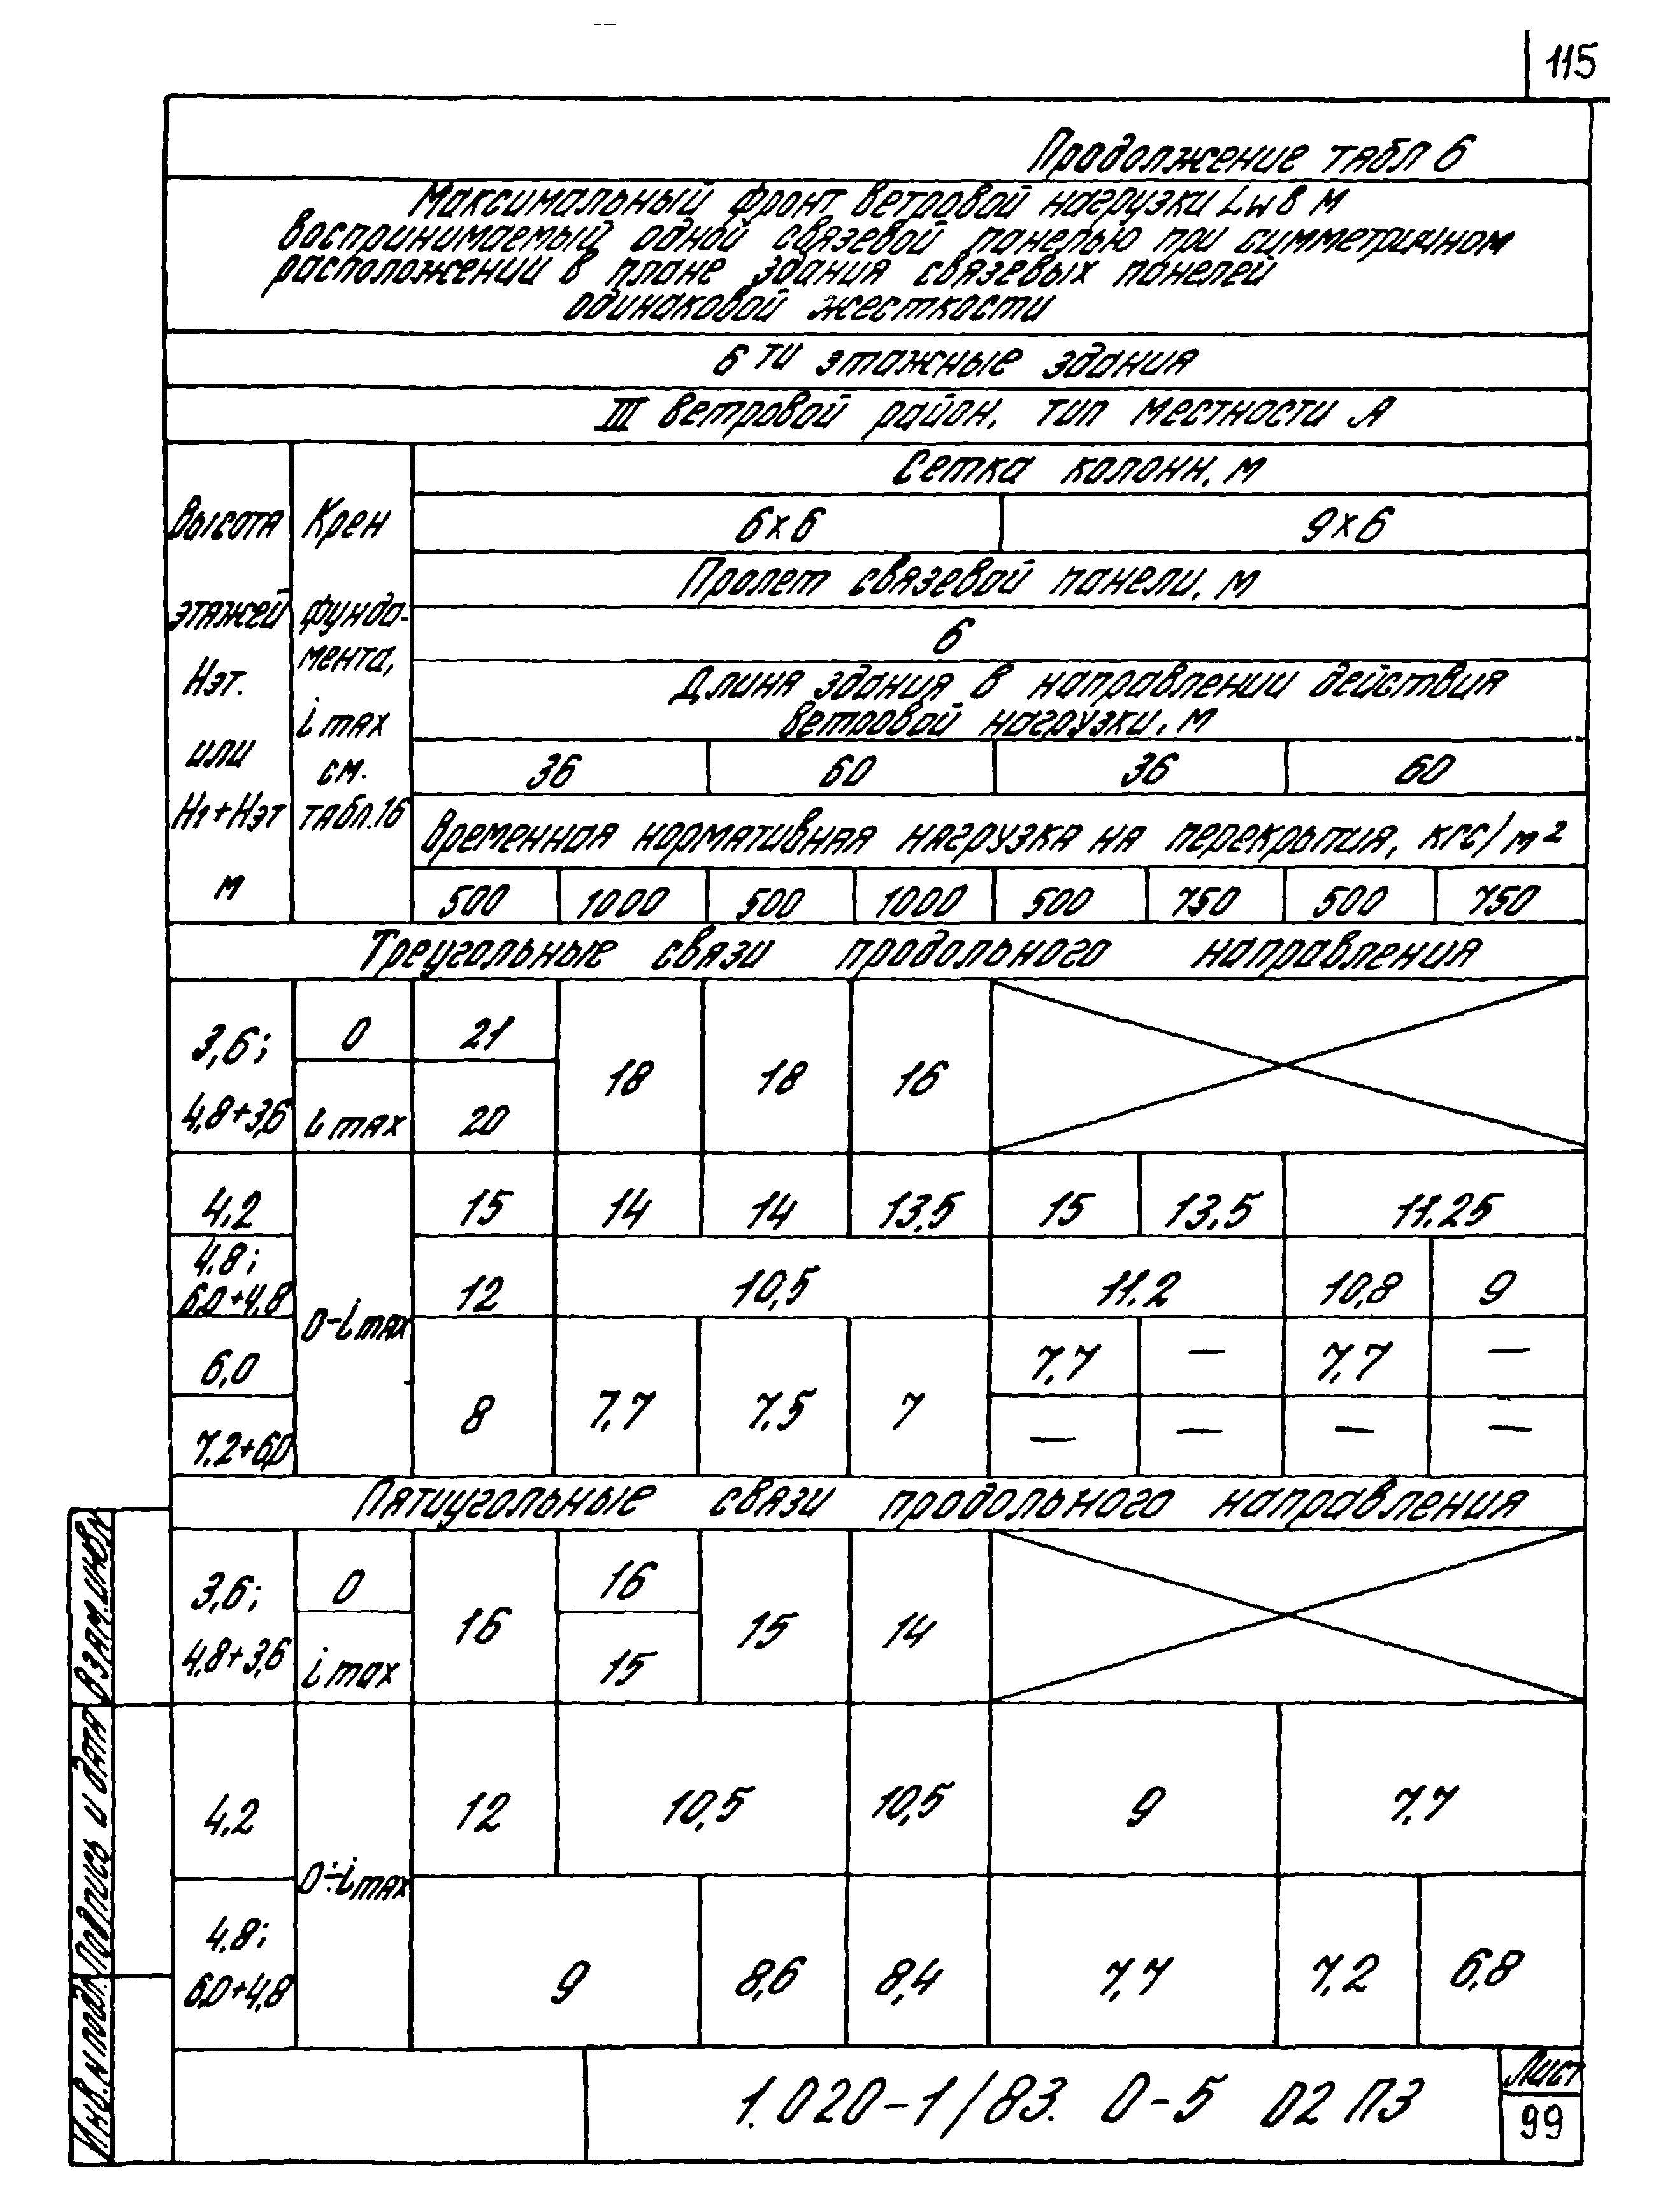 115
Продолжение табл 6
Максимальный фронт ветровой нагрузки Lw в м
воспринимаемый одной связевой панелью при симметричном
расположении в плане здания связевых панелей
одинаковой жесткости
6ти этажные здания
III ветровой район, тип местности А
Высота этажей Нэт. или Н1+Нэт м
Крен фунда-
мента,
i max
см.
табл.16
Сетка колонн, м
6х6 9х6
Пролет связевой панели, м
6
Длина здания в направлении действия
ветровой нагрузки, м
36 60 36 60
Временная нормативная нагрузка на перекрытия, кгс/м²
500 1000 500 1000 500 750 500 750
Треугольные связи продольного направления
3,6; 0 21
18 18 16
4,8+3,6 i max 20
4,2 15 14 14 13,5 15 13,5 11.25
4.8;
6,0+4,8 12 10,5 11.2 10,8 9
0-i max
6,0 7,7 — 7,7 —
8 7,7 7,5 7
7.2+6,0 — — — —
Пятиугольные связи продольного направления
3,6; 0 16
16 15 14
4,8+3,6 i max 15
4,2 12 10,5 10,5 9 7,7
0÷i max
4.8;
6,0+4,8 9 8,6 8,4 7,7 7,2 6,8
1.020-1/83. 0-5 02 ПЗ
Лист
99
Взам.инв.N
Подпись и дата
Инв.N подл.